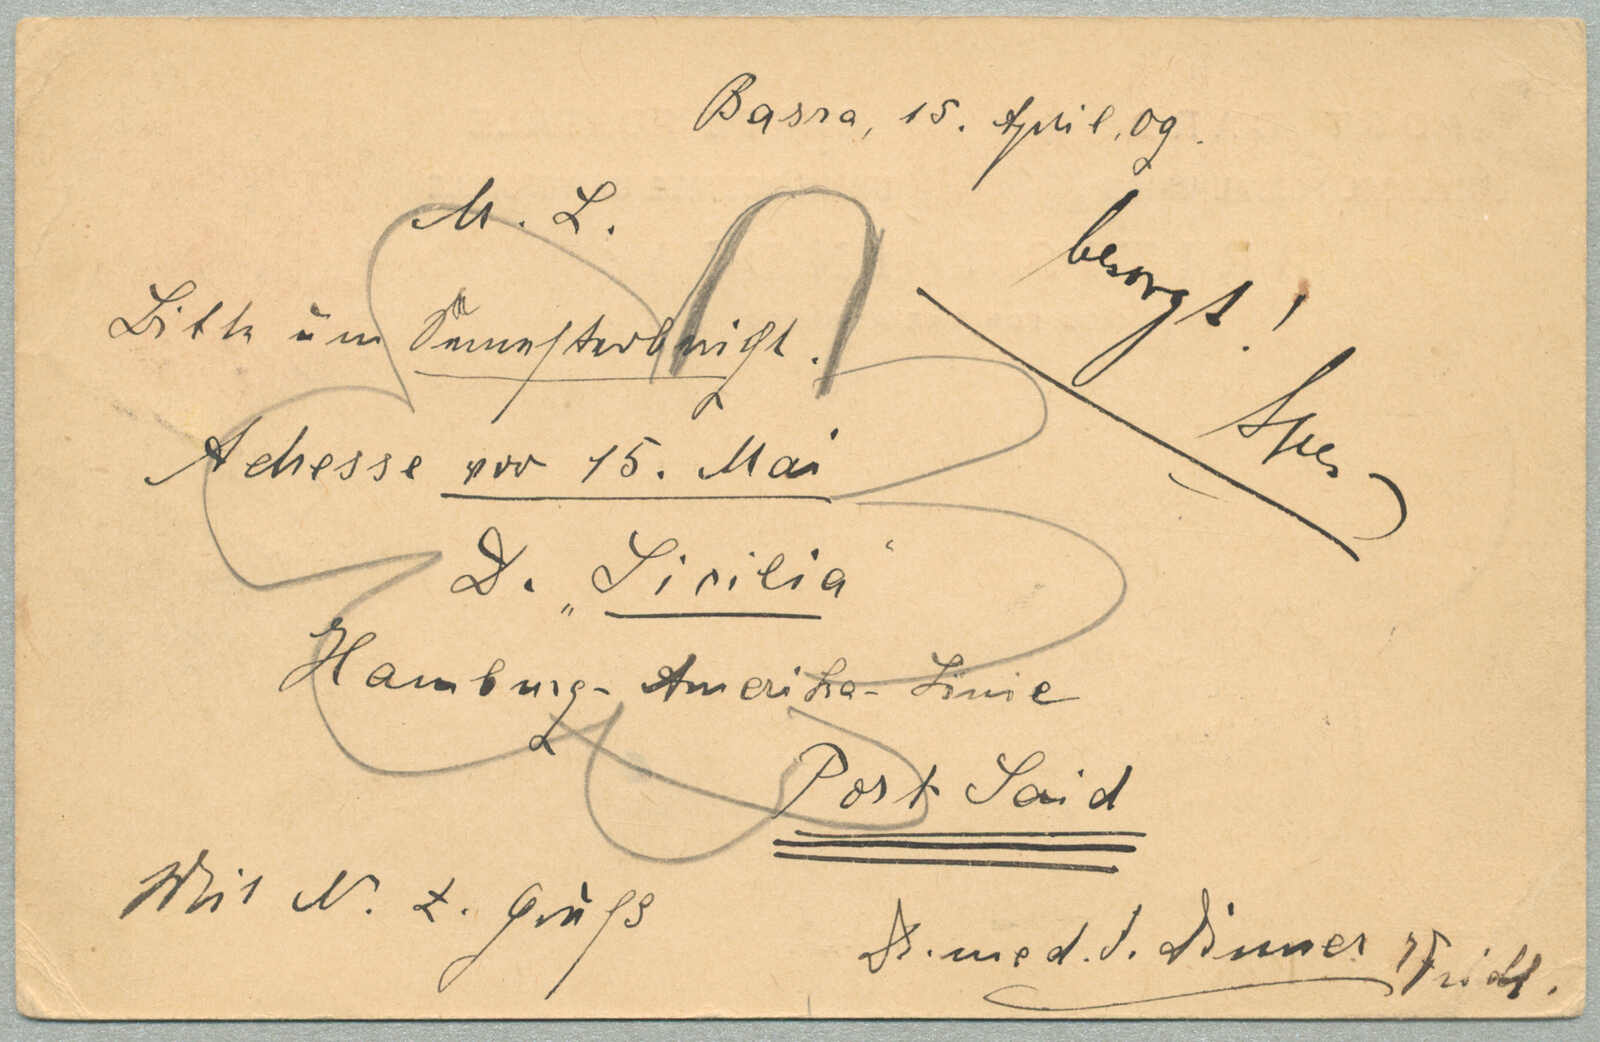 Basra, 15. April, 09.
M. L.
besorgt!
Bitte um Semesterbericht.
Adresse vor 15. Mai
D. „Sicilia“
Hamburg-Amerika-Linie
Port Said
Mit N. Z. Gruß
Dr. med. J. Dinner